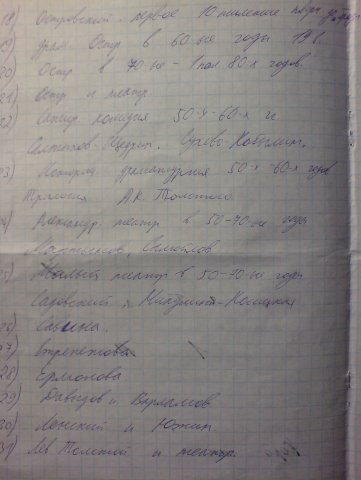 18) Островский. первое 10тилетие
19) драм Остр в 60-ые годы 19 в.
20) Остр в 70-ые - 1 пол 80-х годов.
21) Остр и театр
22) Сатир комедия 50-х-60-х гг
Салтыков-Щедрин. Сухово-Кобылин.
23) Историч драматургия 50-х-60-х годов
Трилогия А.К. Толстого
24) Александр. театр в 50-70-ые годы
Мартынов, Самойлов
25) Малый театр в 50-70-ые годы
Садовский и Никулина-Косицкая
26) Савина.
27) Стрепетова
28) Ермолова
29) Давыдов и Варламов
30) Ленский и Южин
31) Лев Толстой и театр.